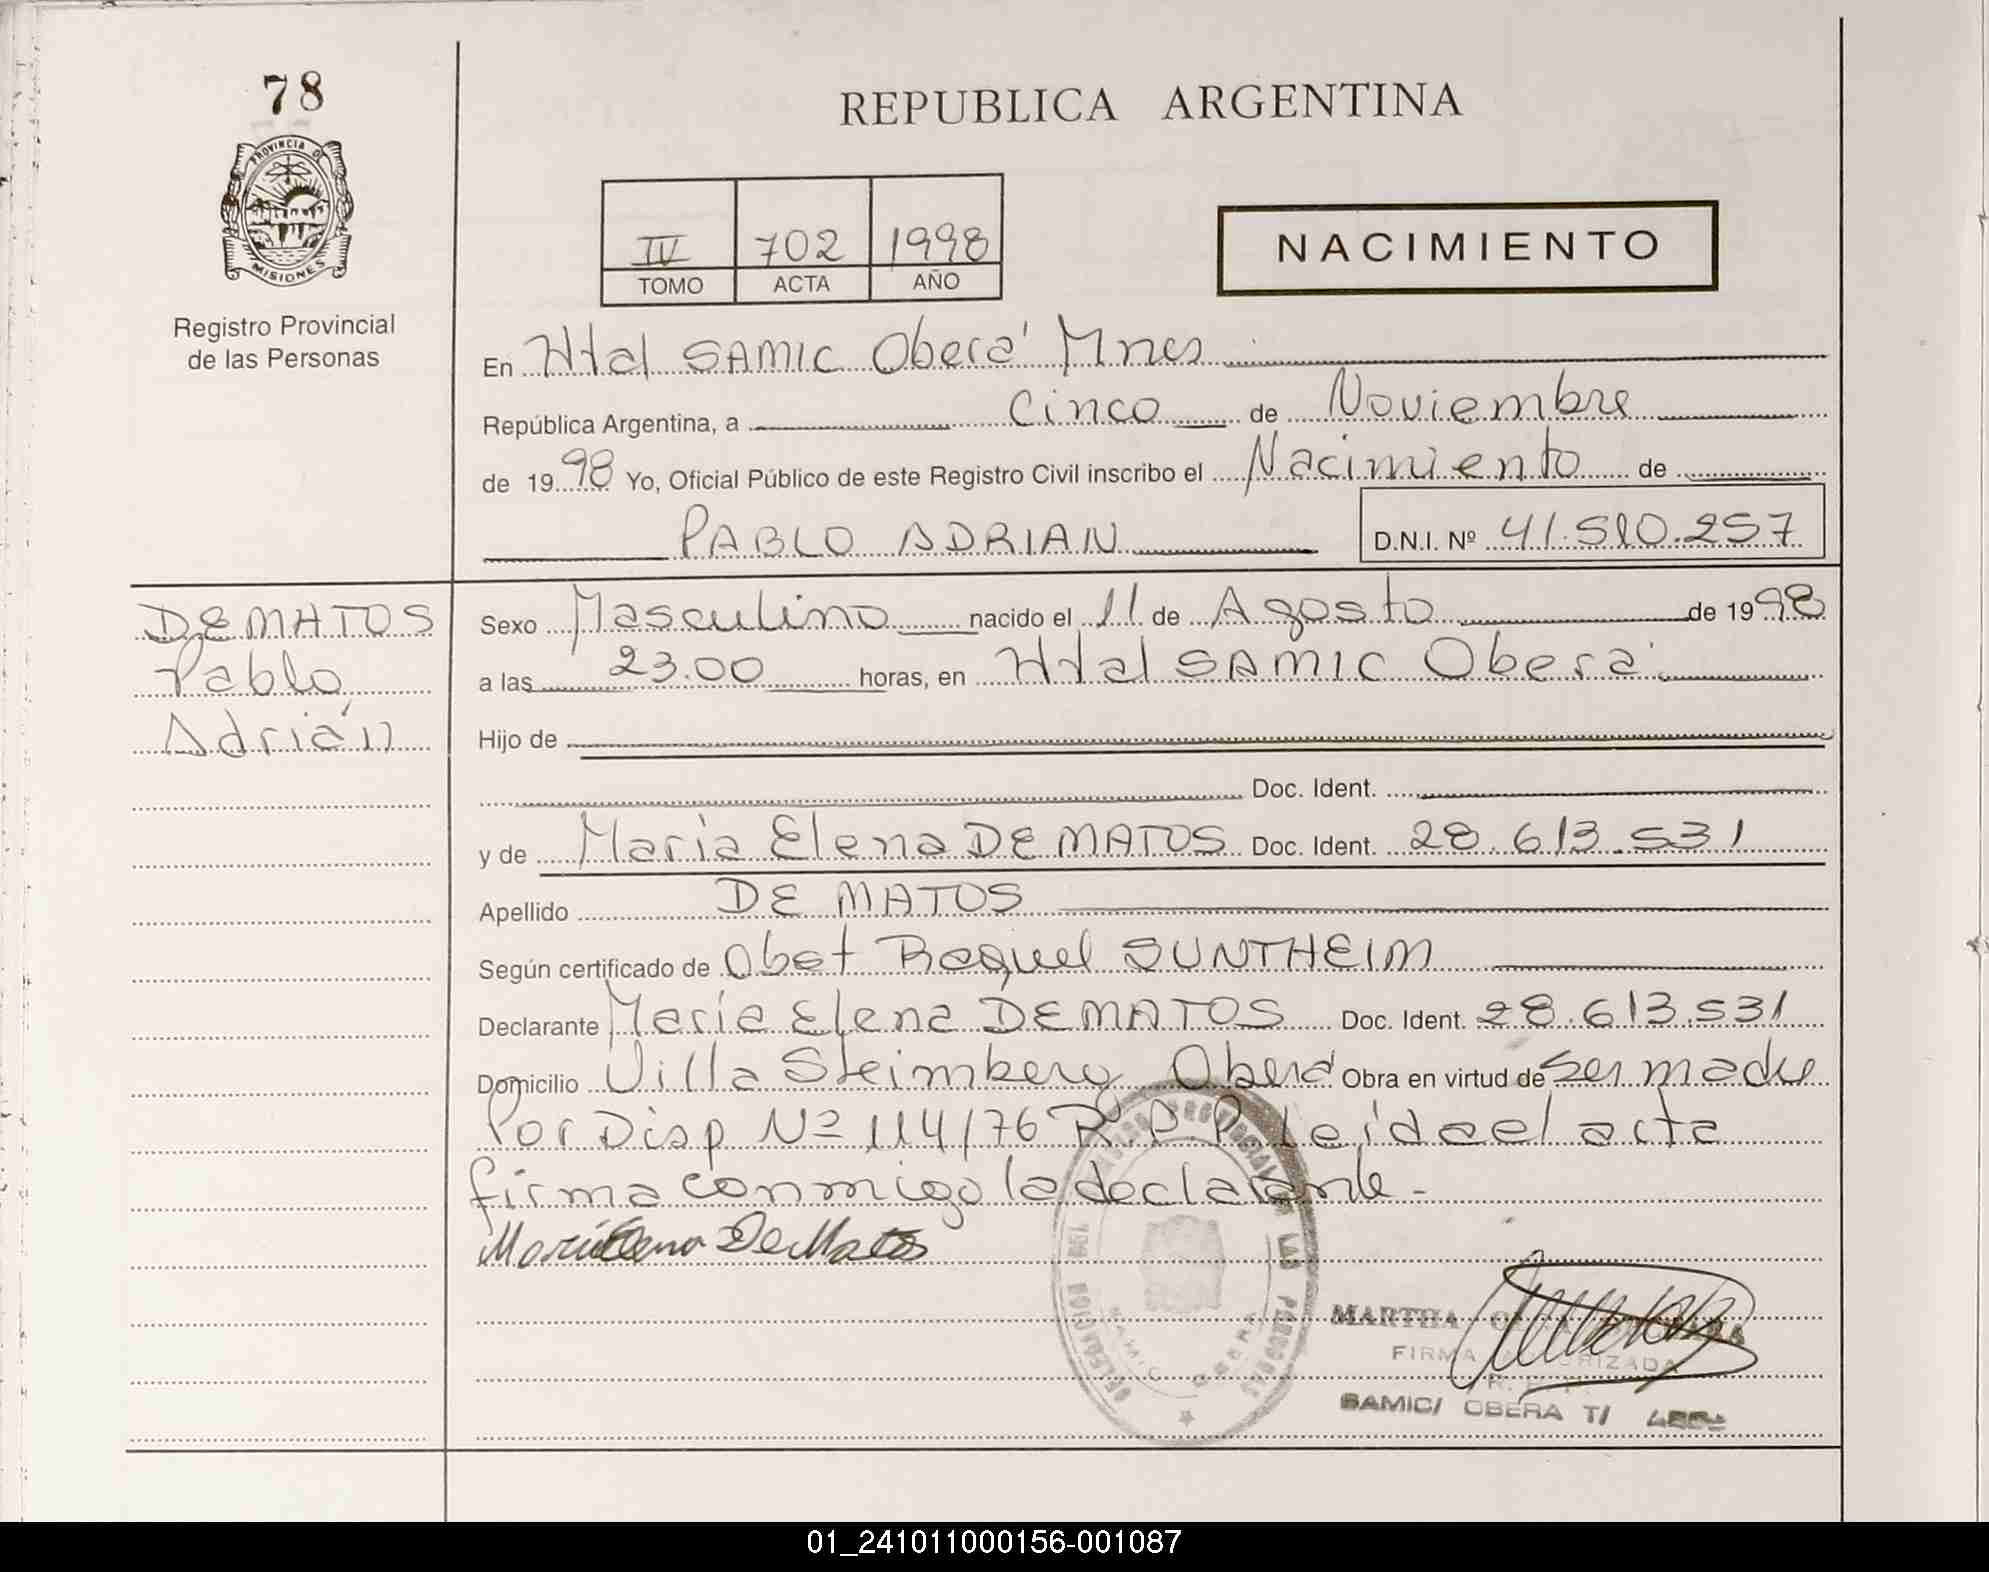 78
REPUBLICA ARGENTINA
PROVINCIA D
MISIONES
Registro Provincial
de las Personas
IV 702 1998
TOMO ACTA AÑO
NACIMIENTO
En Htal SAMIC Oberá Mnes
República Argentina, a Cinco de Noviembre
de 1998 Yo, Oficial Público de este Registro Civil inscribo el Nacimiento de
PABLO ADRIAN D.N.I. Nº 41.510.257
DE MATOS
Pablo
Adrián
Sexo Masculino nacido el 11 de Agosto de 1998
a las 23.00 horas, en Htal SAMIC Oberá
Hijo de
Doc. Ident.
y de Maria Elena DE MATOS Doc. Ident. 28.613.531
Apellido DE MATOS
Según certificado de Obst Raquel SUNTHEIM
Declarante María Elena DE MATOS Doc. Ident. 28.613.531
Domicilio Villa Steimberg Oberá Obra en virtud de ser madre
Por Disp Nº 114/76 R.P.P. Leída el acta
firma conmigo la declarante.-
Maria Elena De Matos
DELEGACION DEL REGISTRO PROVINCIAL DE LAS PERSONAS
SAMIC OBERA
MARTHA
FIRMA AUTORIZADA
R.
SAMIC/ OBERA T/
01_241011000156-001087